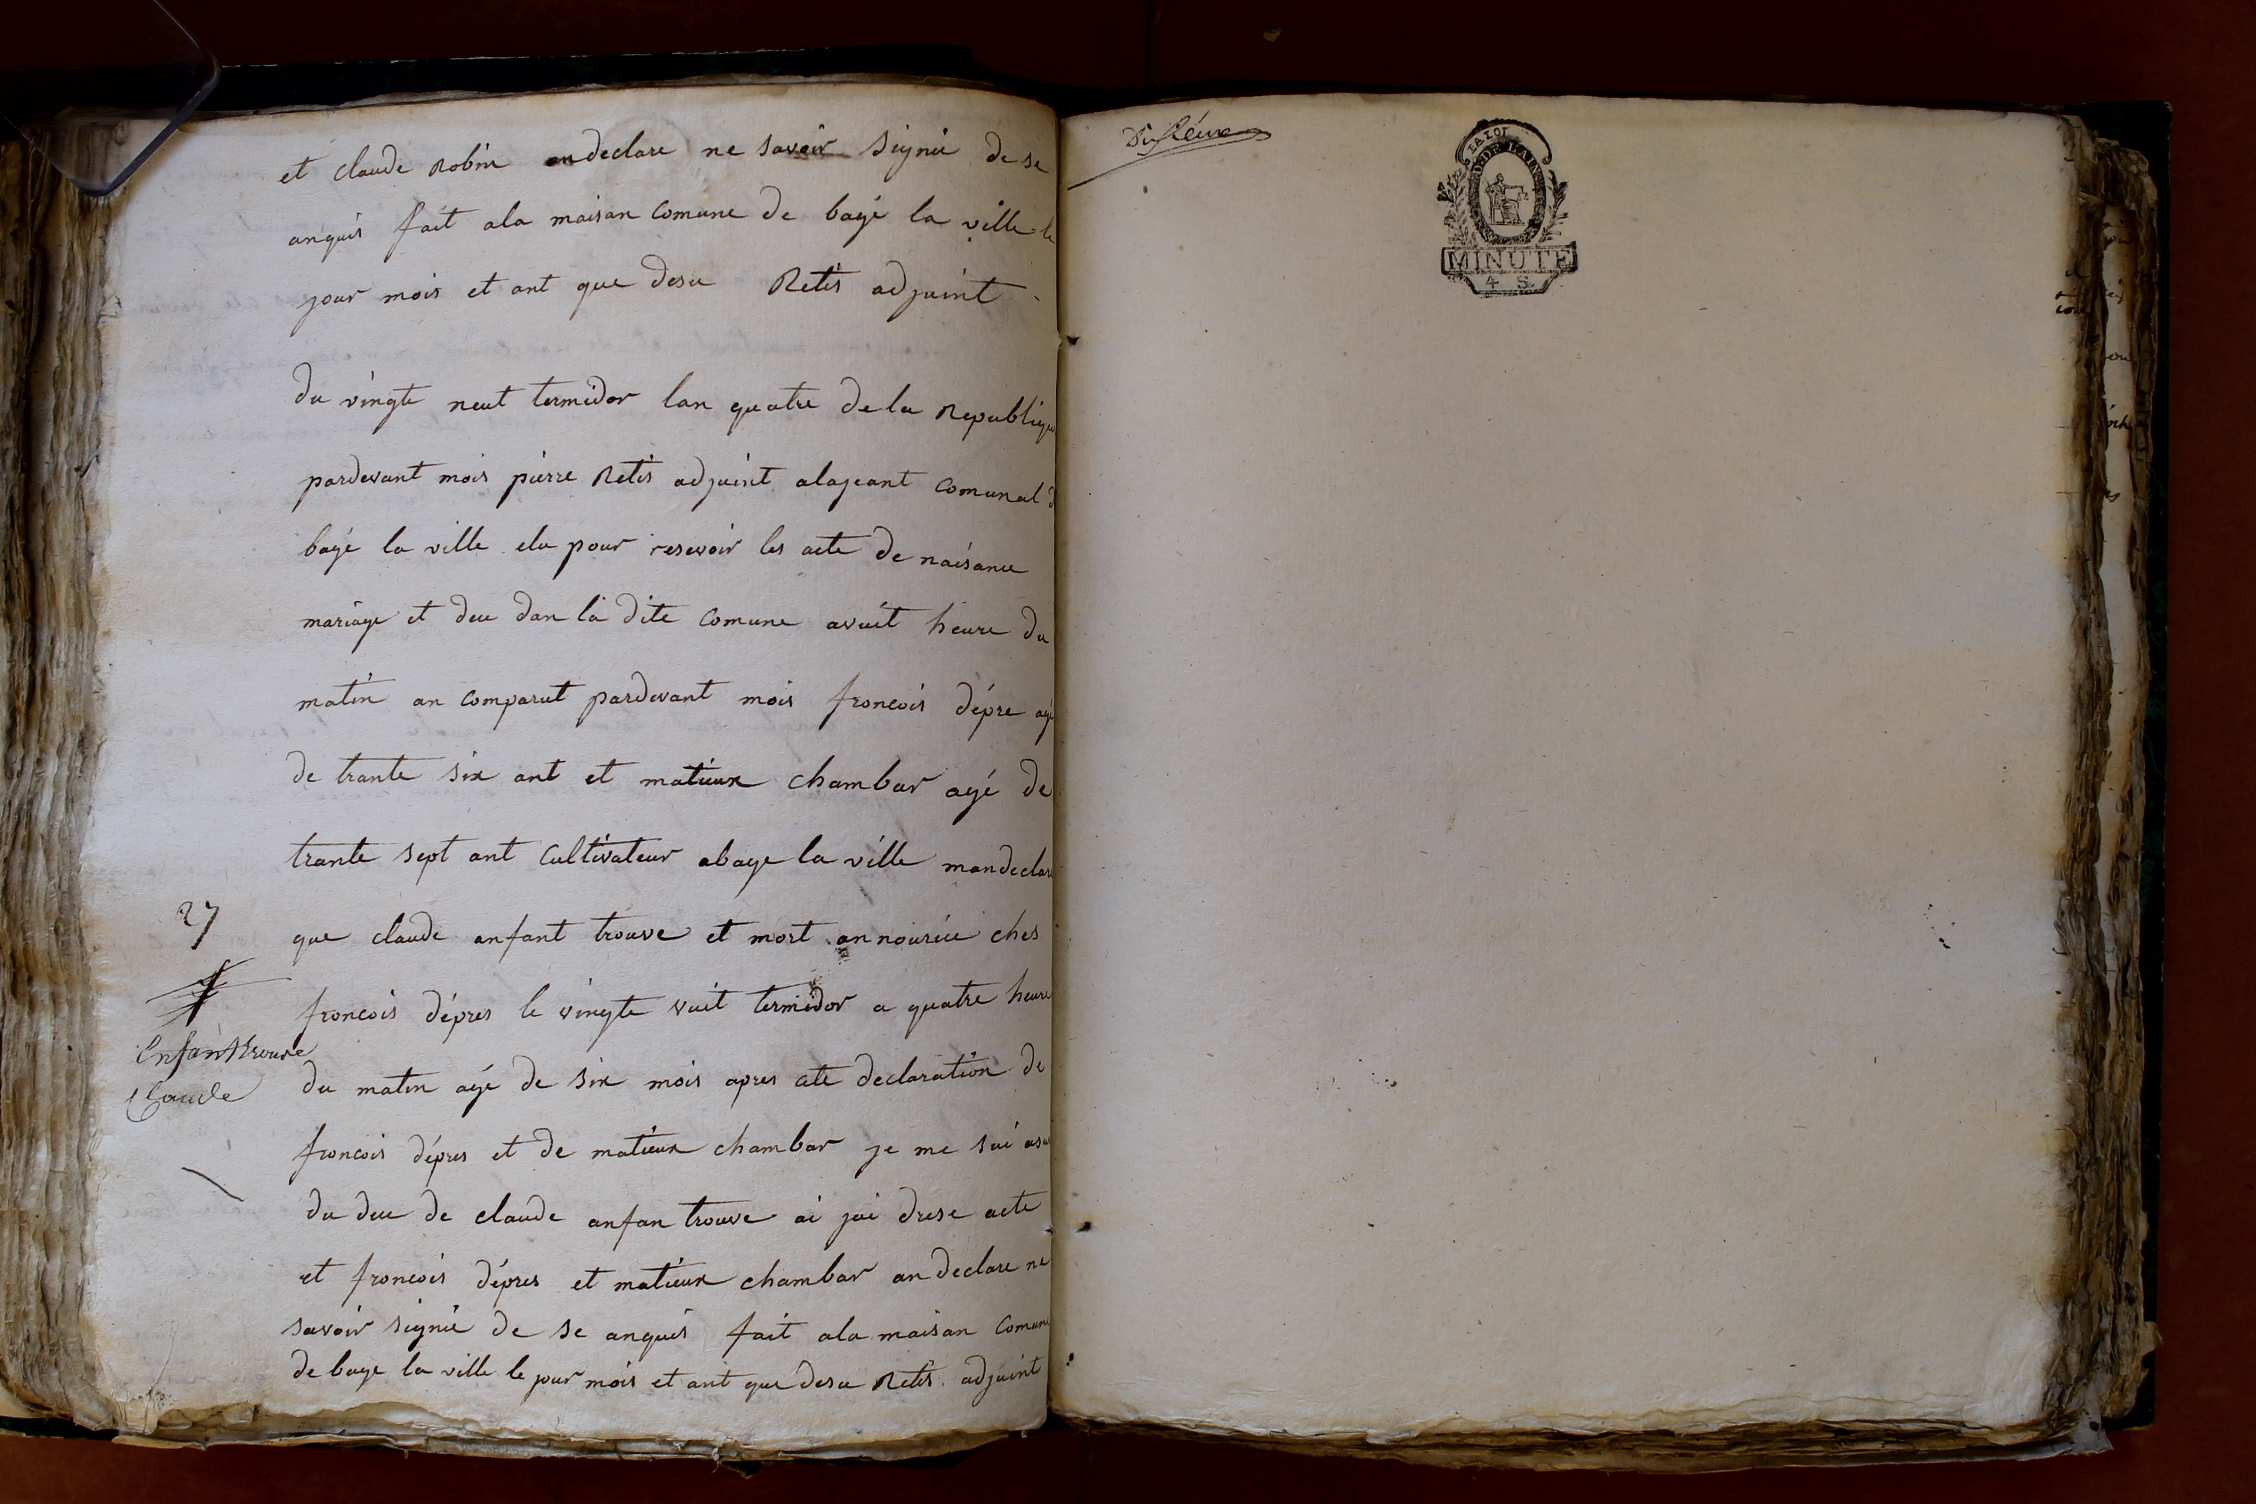 et claude Robin an declare ne savoir signié de se
anquis fait ala maisan comune de bagé la ville le
jour mois et ant que desu Retis adjuint
du vingte neut termidor lan quatre de la Republique
pardevant mois pierre Retis adjuint alajeant comunal d
bagé la ville elu pour resevoir les acte de naisance
mariage et dece dan la dite comune avuit heure du
matin an comparut pardevant mois froncois dépre agé
de trante six ant et matieux chambar agé de
trante sept ant cultivateur abage la ville mandeclare
27
que claude anfant trouve et mort an nouriee ches
froncois dépres le vingte vuit termidor a quatre heure
Enfan trouve
Claude
du matin agé de six mois apres cete declaration de
froncois dépres et de matieux chambar je me sui asu
du dece de claude anfan trouve ai jai drese acte
et froncois dépres et matieux chambar an declare ne
savoir signié de se anquis fait ala maisan comune
de bage la ville le jour mois et ant que desu Retis adjuint
LA LOI
MINUTE
4 S.